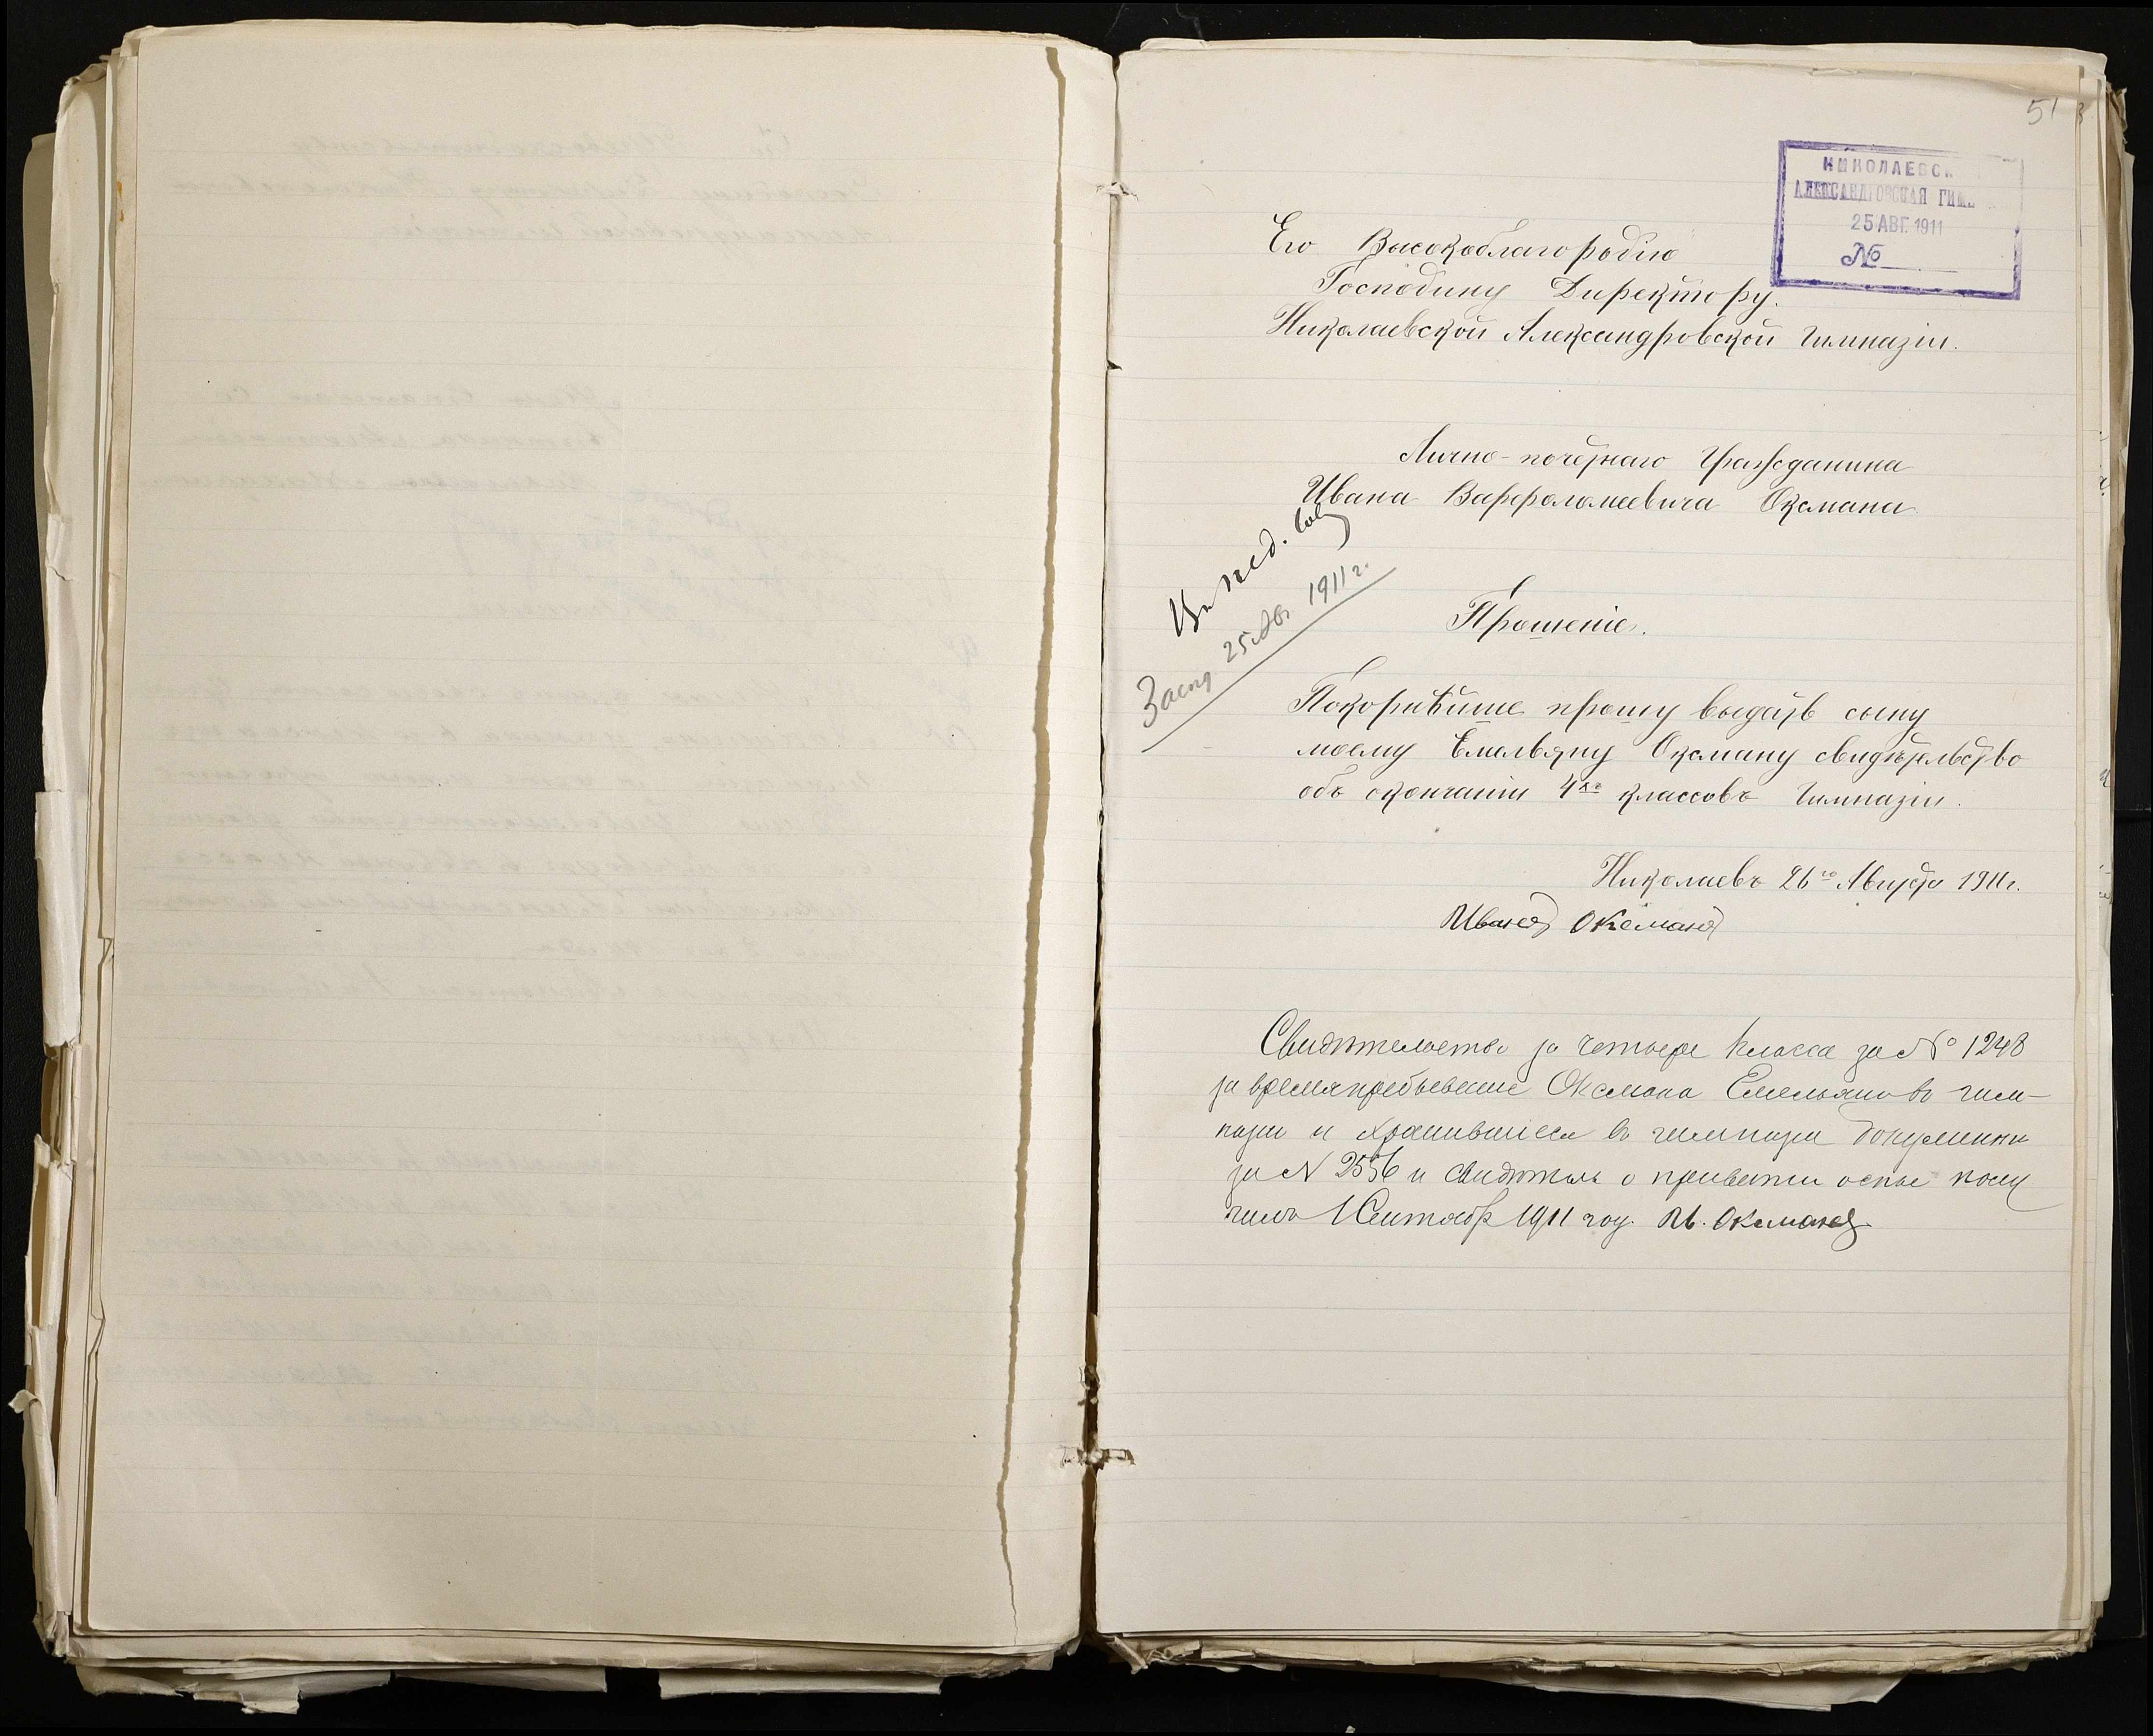 51
НИКОЛАЕВСК
АЛЕКСАНДРОВСКАЯ ГИМН
25 АВГ. 1911
№
Его Высокоблагородію
Господину Директору.
Николаевской Александровской Гимназіи.
Лично-почетнаго Гражданина
Ивана Варфоломеевича Оксмана
Въ пед. сов
Засед 25 Авг 1911 г.
Прошеніе.
Покорнѣйше прошу выдать сыну
моему Емельяну Оксману свидѣтельство
объ окончаніи 4хъ классовъ Гимназіи.
Николаевъ 26го Августа 1911 г.
Иванъ Оксманъ
Свидѣтельство за четыре класса за № 1248
за время пребывание Оксмана Емельяна въ гим-
назии и хранившиеся въ гимназии документы
за N 2556 и свидѣтель о привитии оспы полу
чилъ 1 Сентября 1911 году. Ив. Оксманъ